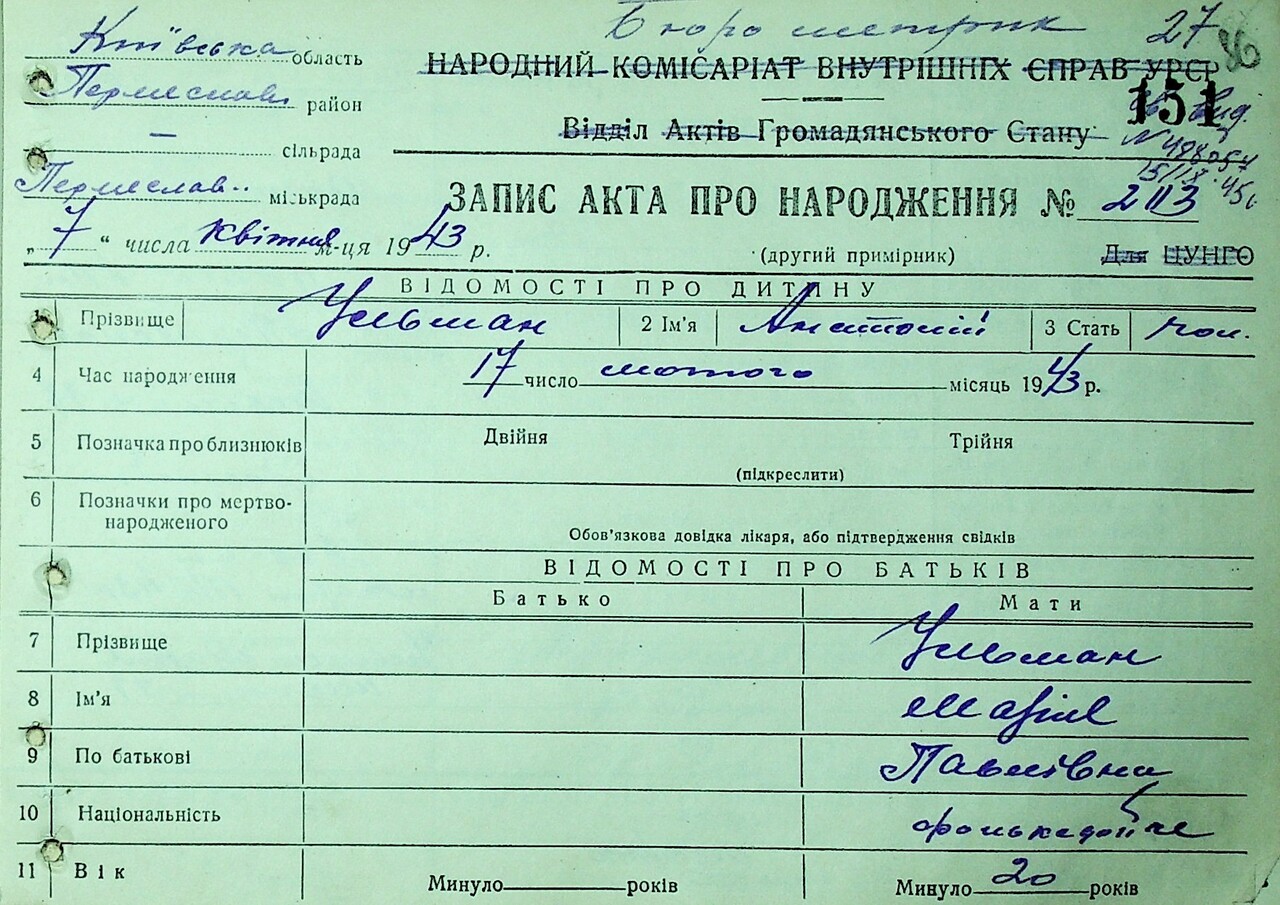 Бюро метрик 27
86
Київська область
НАРОДНИЙ КОМІСАРІАТ ВНУТРІШНІХ СПРАВ УРСР
Переяслав. район
151
Відділ Актів Громадянського Стану
— сільрада
15/IX.45
Переяслав.. міськрада
ЗАПИС АКТА ПРО НАРОДЖЕННЯ № 2113
„ 7 “ числа квітня м-ця 1943 р.
(другий примірник) Для ЦУНГО
ВІДОМОСТІ ПРО ДИТИНУ
1 Прізвище Ульман 2 Ім'я Анатолій 3 Стать чол.
4 Час народження 17 число лютого місяць 1943 р.
5 Позначка про близнюків Двійня Трійня
(підкреслити)
6 Позначки про мертво-
народженого
Обов'язкова довідка лікаря, або підтвердження свідків
ВІДОМОСТІ ПРО БАТЬКІВ
Батько Мати
7 Прізвище Ульман
8 Ім'я Марія
9 По батькові Павлівна
10 Національність фольксдойче
11 Вік Минуло років Минуло 20 років